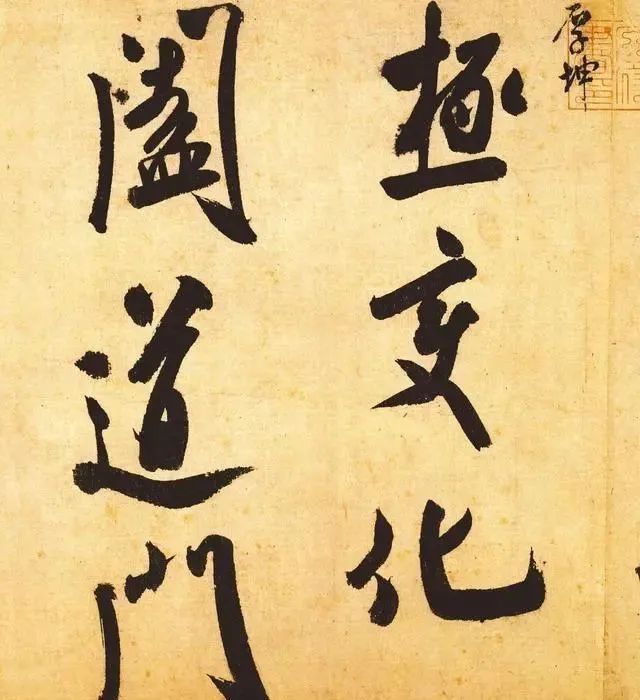 厚坤
極變化
闔道門